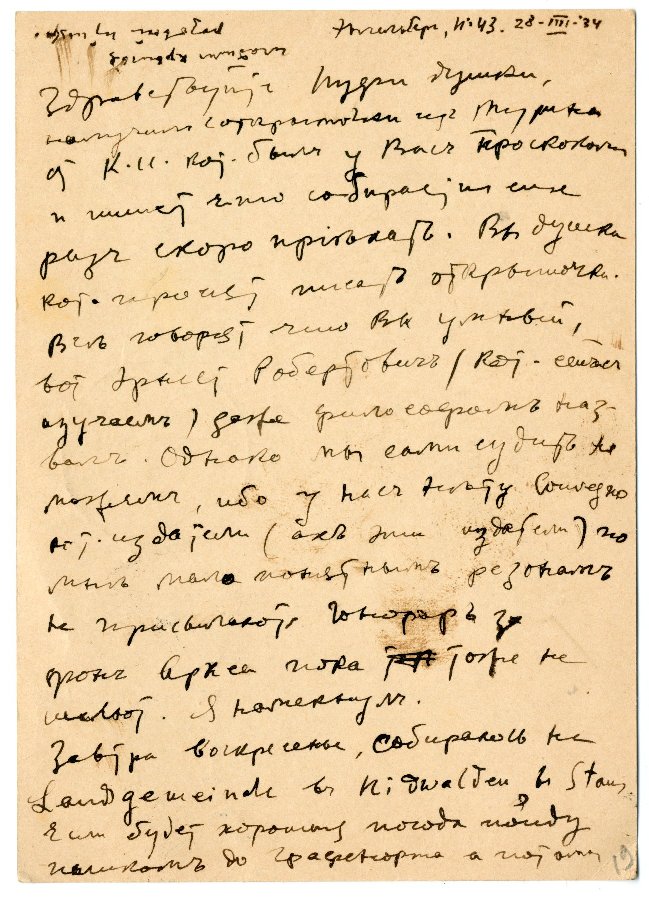 Энгельберг, 28-III-34
Здравствуйте Пудри душки,
получили открыточки из
от К.И. кот. былъ у Васъ проскокомъ
и пишет что собирается еще
разъ скоро пріѣхать. Вы душка
кот. просит писать открыточки.
говорят что Вы умный,
вот Эрнест Робертович (кот. сейчас
изучаем) даже философомъ наз-
валъ. Однако мы сами судить не
можемъ, ибо у насъ нѣту
издатели (ахъ эти издатели) по
мнѣ мало понятнымъ резонамъ
не присылают. Гонорар за
пока тоже не
шлют. Я намекнулъ.
Завтра воскресенье, собираюсь на
Landsgemeinde въ Nidwalden в Stans
Если будет хорошая погода пойду
пешкомъ до Графенорта а потомъ
19